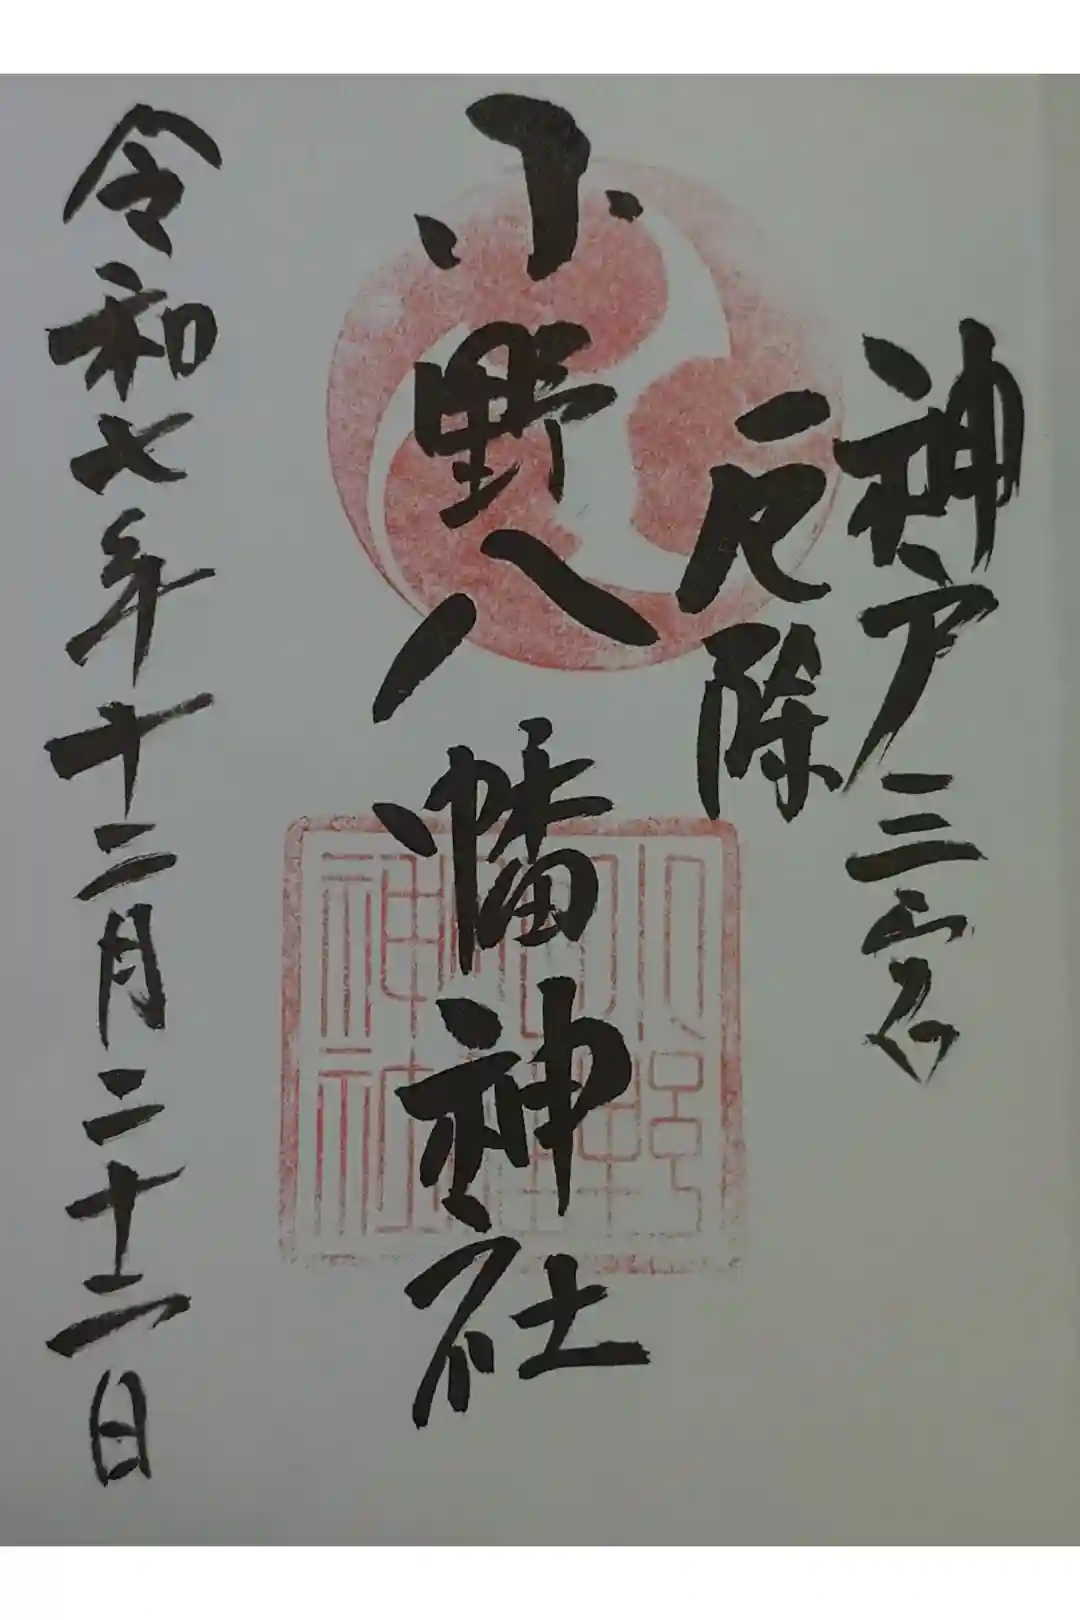 神戸三宮
厄除
小野八幡神社
令和七年十二月二十二日
小野
神社